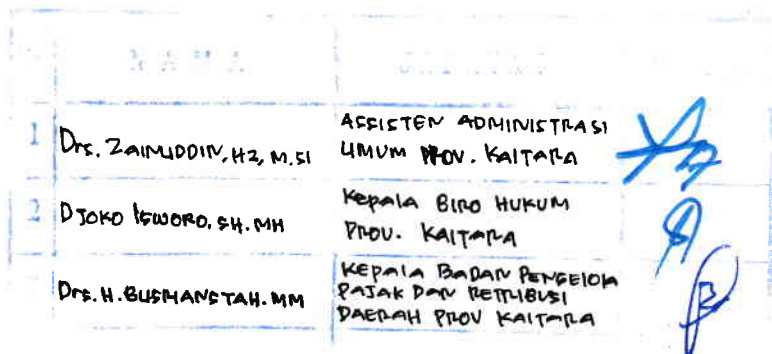 NAMA
1 Drs. ZAINUDDIN, HZ, M.SI
ASSISTEN ADMINISTRASI
UMUM PROV. KALTARA
2 DJOKO ISWORO, SH. MH
KEPALA BIRO HUKUM
PROV. KALTARA
Drs. H. BUSRIANSYAH. MM
KEPALA BADAN PENGELOLA
PAJAK DAN RETRIBUSI
DAERAH PROV KALTARA